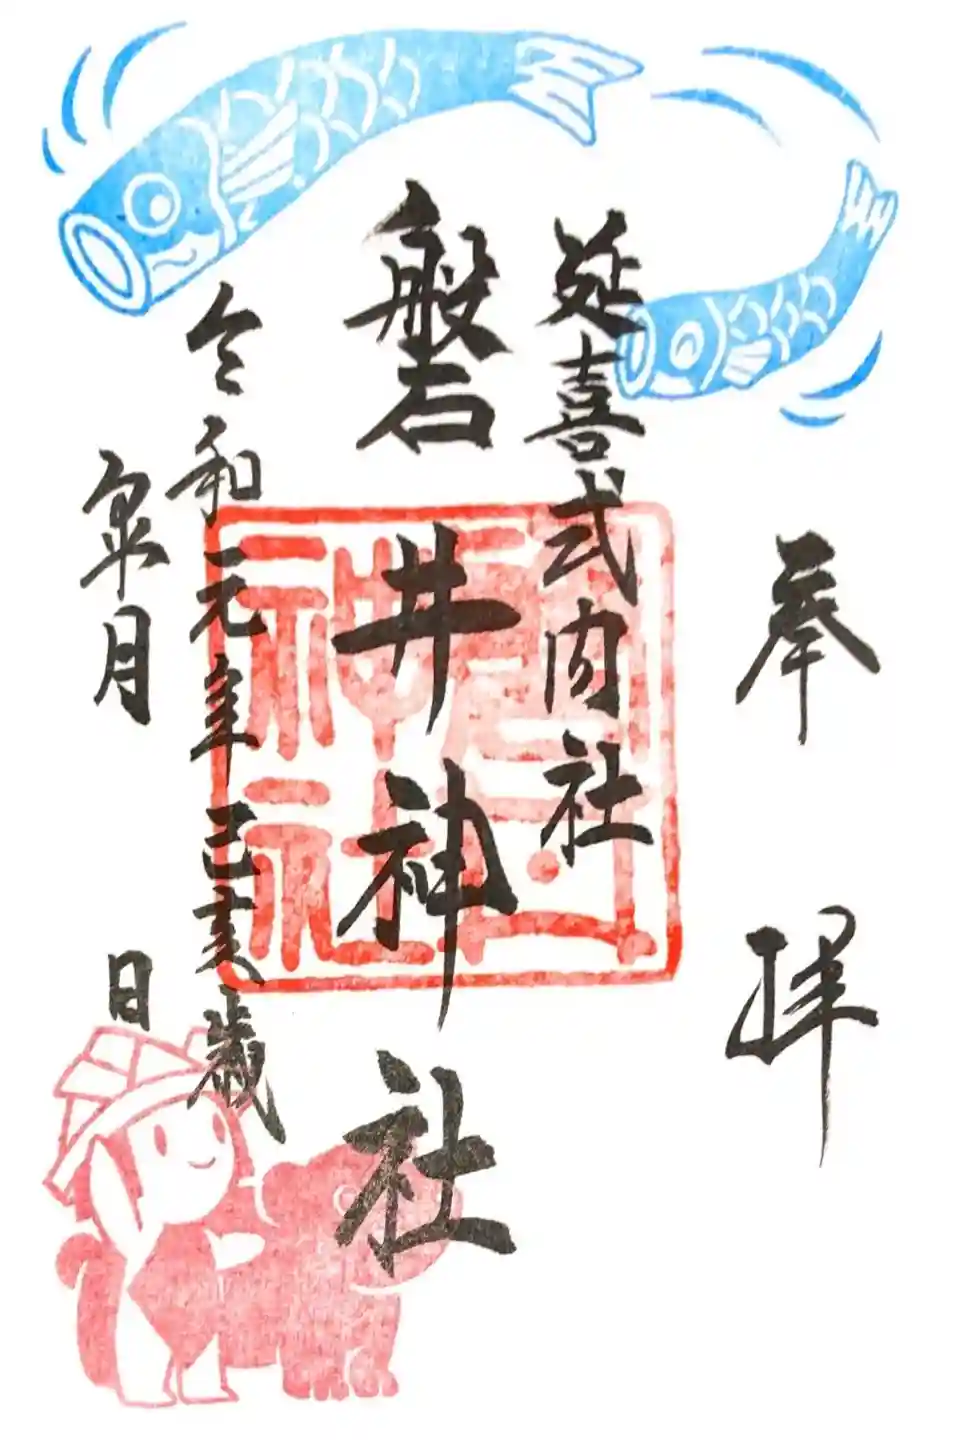 奉拝
延喜式内社
磐井神社
令和元年己亥歳
皐月 日
磐井
神社